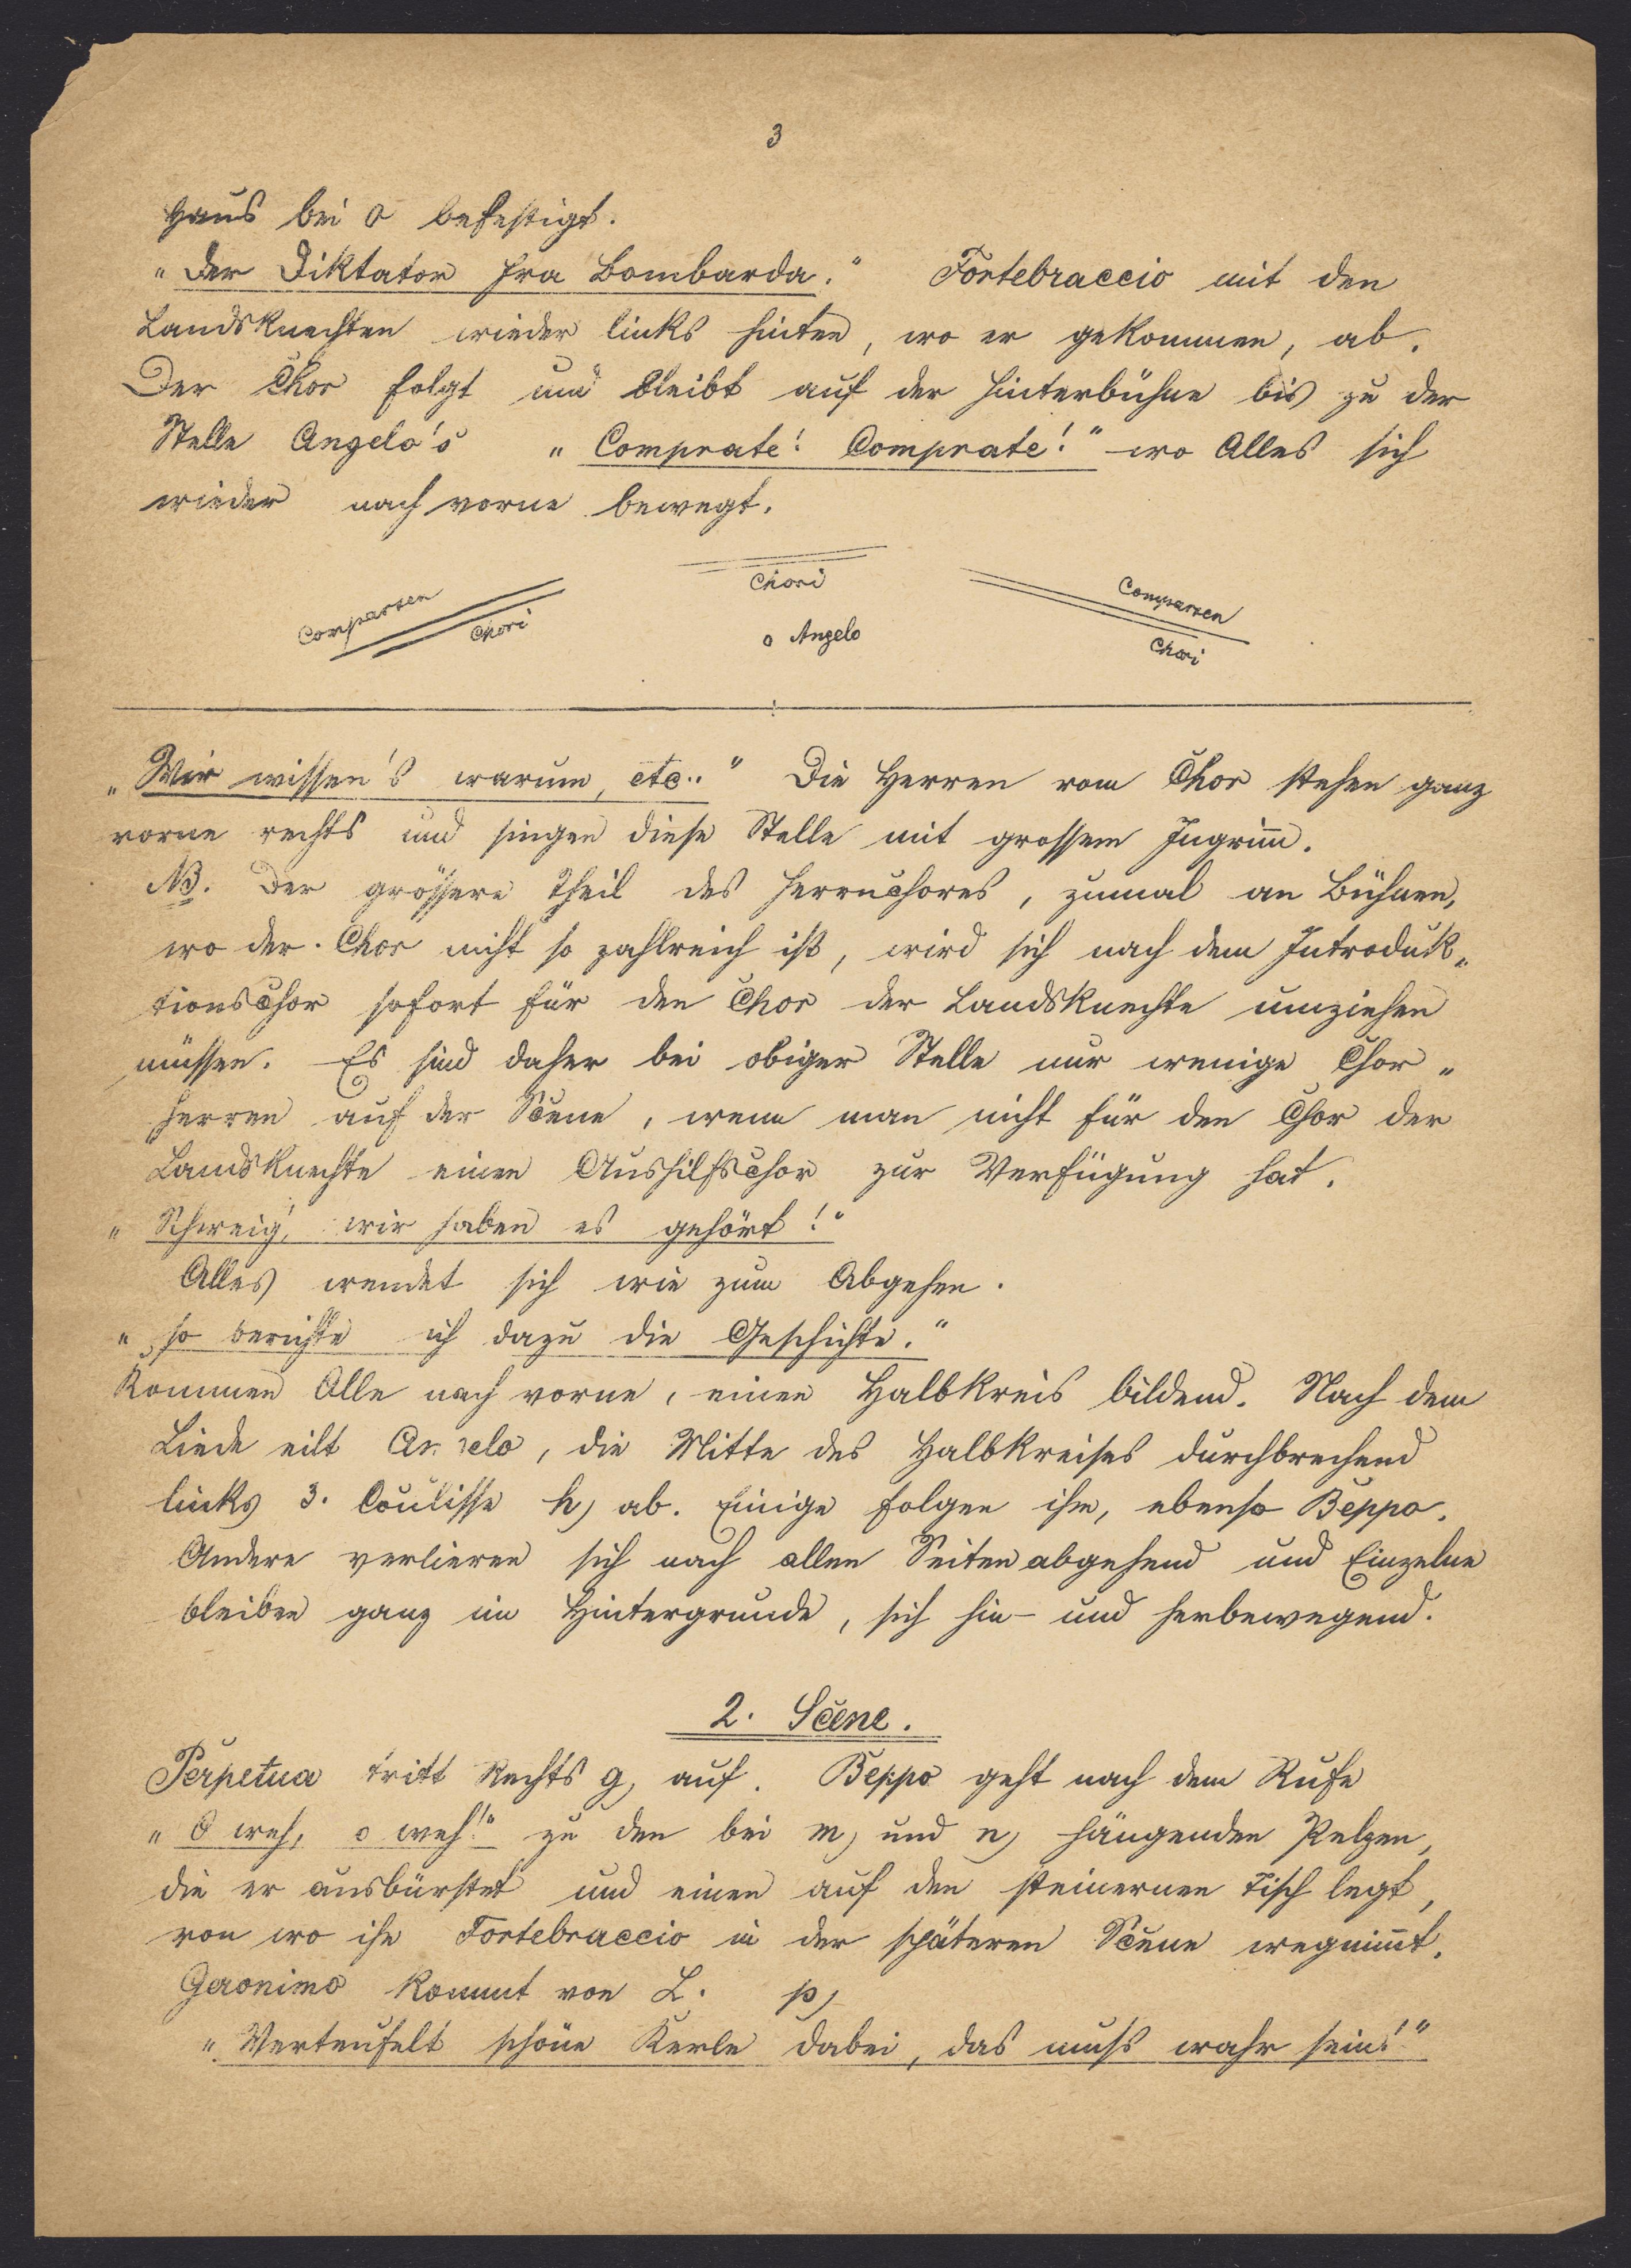 3
Haus bei o befestigt.
"Der Diktator Fra Bombarda." Fortebraccio mit den
Landsknechten wieder links hinten, wo er gekommen, ab.
Der Chor folgt und bleibt auf der Hinterbühne bis zu der
Stelle Angelo's "Comprate! Comprate!" wo Alles sich
wieder nach vorne bewegt.
Comparsen Chori
Chori
o Angelo
Comparsen
Chori
"Wir wissen's warum, etc.." Die Herren vom Chor stehen ganz
vorne rechts und singen diese Stelle mit grossem Ingrim̄.
NB. Der grössere Theil des Herrnchores, zumal an Bühnen,
wo der Chor nicht so zahlreich ist, wird sich nach dem Introduk„
tionschor sofort für den Chor der Landsknechte umziehen
müssen. Es sind daher bei obiger Stelle nur wenige Chor„
herren auf der Scene, wenn man nicht für den Chor der
Landsknechte einen Aushilfschor zur Verfügung hat.
"Schweig', wir haben es gehört!"
Alles wendet sich wie zum Abgehen.
"so berichte ich dazu die Geschichte."
Kommen Alle nach vorne, einen Halbkreis bildend. Nach dem
Liede eilt Angelo, die Mitte des Halbkreises durchbrechend
links 3. Coulisse h) ab. Einige folgen ihm, ebenso Beppo.
Andere verlieren sich nach allen Seiten abgehend und Einzelne
bleiben ganz im Hintergrunde, sich hin- und herbewegend.
2. Scene.
Perpetua tritt Rechts g) auf. Beppo geht nach dem Rufe
"O weh, o weh!" zu den bei m) und n) hängenden Pelzen,
die er ausbürstet und einen auf den steinernen Tisch legt,
von wo ihn Fortebraccio in der späteren Scene wegnim̄t.
Geronimo kommt von L. p)
"Verteufelt schöne Kerle dabei, das muss wahr sein!"